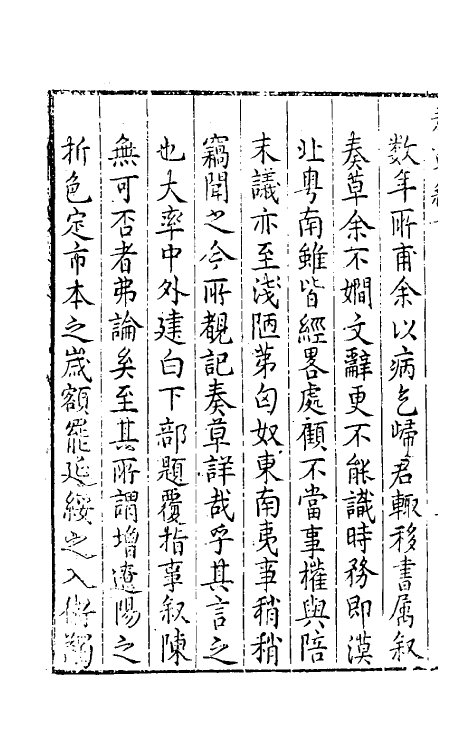 数年所甫余以病乞歸君輙移書属叙
奏草余不嫺文辭更不能識時務即漠
北粤南雖皆經畧處顧不當事權與陪
末議亦至淺陋第匈奴東南夷事稍稍
竊聞之今所覩記奏草詳哉乎其言之
也大率中外建白下部題覆指事叙陳
無可否者弗論矣至其所謂增遼陽之
折色定市本之嵗額罷延綏之入衛蠲